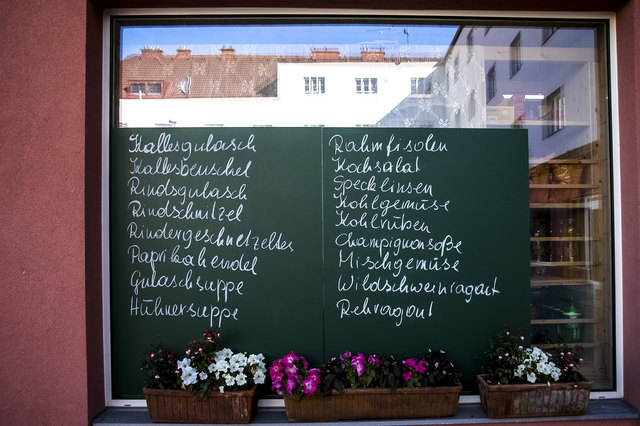 Kalbsgulasch
Kalbsbeuschel
Rindsgulasch
Rindschnitzel
Rindergeschnetzeltes
Paprikahendel
Gulaschsuppe
Hühnersuppe
Rahmfisolen
Kochsalat
Specklinsen
Kohlgemüse
Kohlrüben
Champignonsoße
Mischgemüse
Wildschweinragout
Rehragout